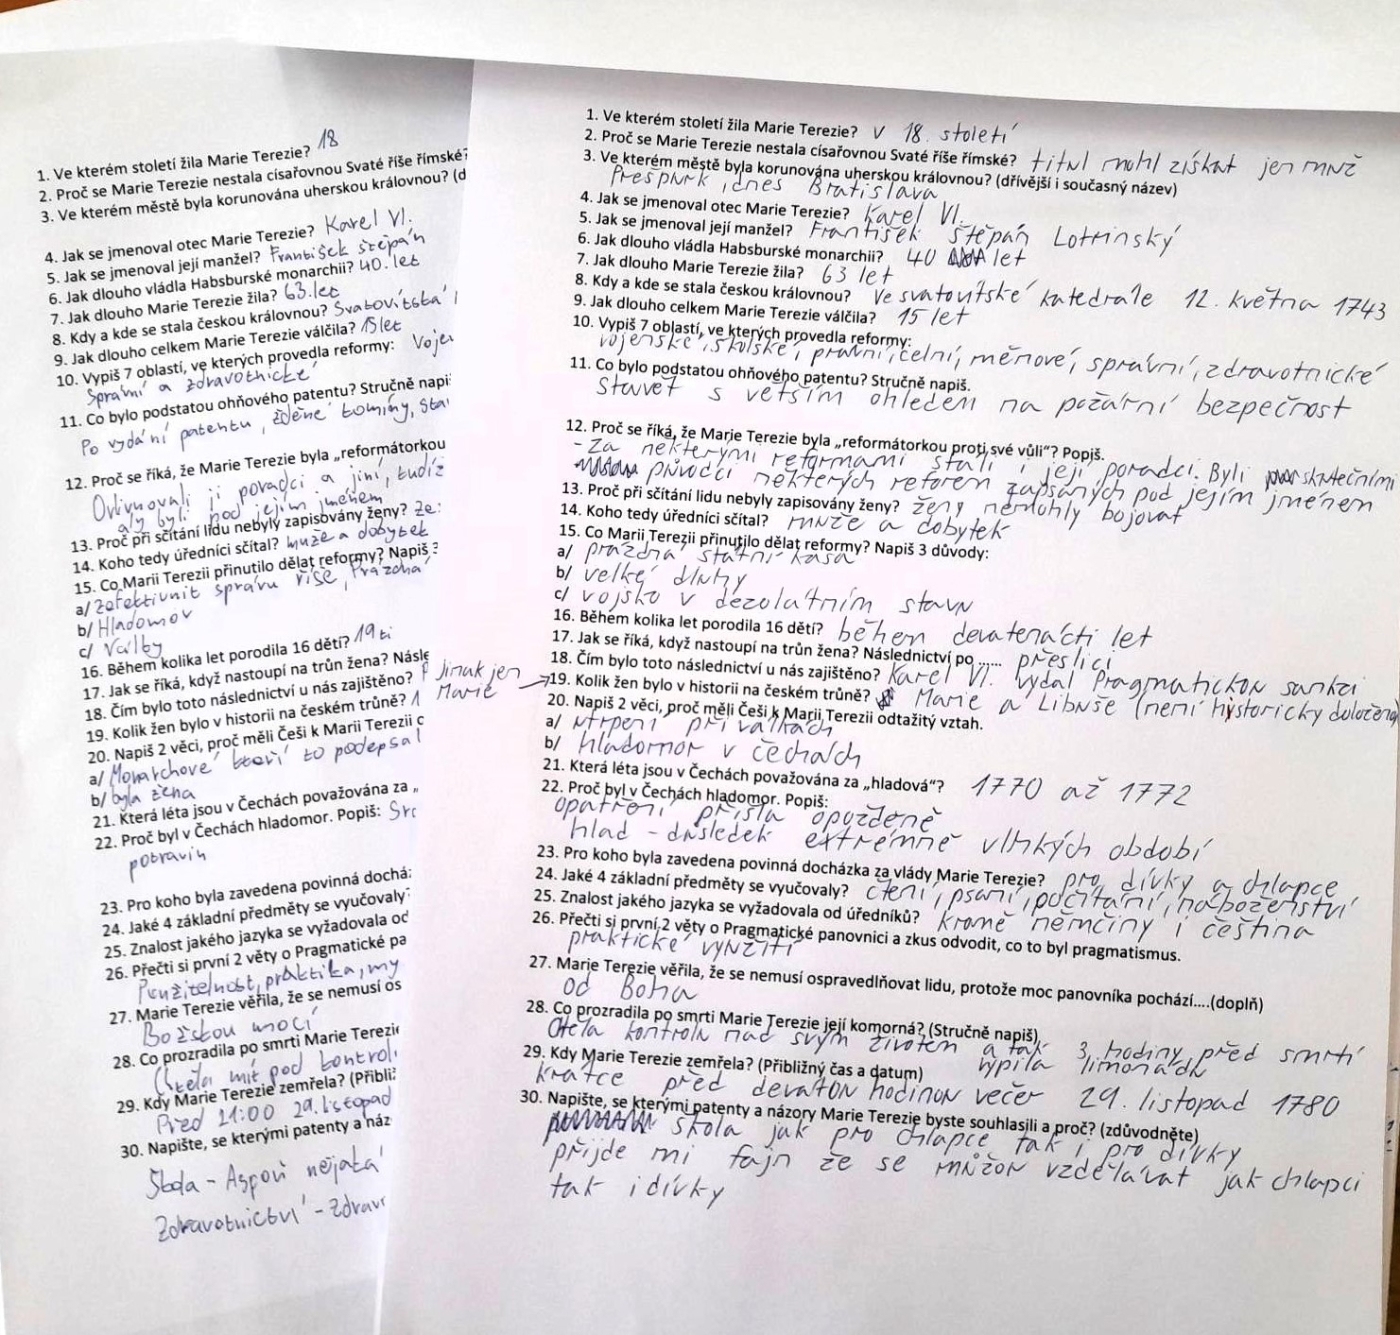 1. Ve kterém století žila Marie Terezie? 18
2. Proč se Marie Terezie nestala císařovnou Svaté říše římské?
3. Ve kterém městě byla korunována uherskou královnou? (d
4. Jak se jmenoval otec Marie Terezie? Karel VI.
5. Jak se jmenoval její manžel? František štěpán
6. Jak dlouho vládla Habsburské monarchii? 40.let
7. Jak dlouho Marie Terezie žila? 63.let
8. Kdy a kde se stala českou královnou? Svatovítská
9. Jak dlouho celkem Marie Terezie válčila? 15let
10. Vypiš 7 oblastí, ve kterých provedla reformy: Voje
Správní a zdravotnické
11. Co bylo podstatou ohňového patentu? Stručně napi
Po vydání patentu, zděné komíny, sta
12. Proč se říká, že Marie Terezie byla „reformátorkou
Ovlivňovali ji poradci a jiní, tudíž
aly byli pod jejím jménem
13. Proč při sčítání lidu nebyly zapisovány ženy? že
14. Koho tedy úředníci sčítal? muže a dobytek
15. Co Marii Terezii přinutilo dělat reformy? Napiš 3
a/ zefektivnit správu říše, Prázdná
b/ Hladomor
c/ Války
16. Během kolika let porodila 16 dětí? 19ti
17. Jak se říká, když nastoupí na trůn žena? Násle
18. Čím bylo toto následnictví u nás zajištěno? P
19. Kolik žen bylo v historii na českém trůně? 1
20. Napiš 2 věci, proč měli Češi k Marii Terezii o
a/ Monarchové kteří to podepsal
b/ byla žena
21. Která léta jsou v Čechách považována za „
22. Proč byl v Čechách hladomor. Popiš: Src
potravin
23. Pro koho byla zavedena povinná dochá
24. Jaké 4 základní předměty se vyučovaly
25. Znalost jakého jazyka se vyžadovala od
26. Přečti si první 2 věty o Pragmatické pa
Použitelnost, praktika, my
27. Marie Terezie věřila, že se nemusí os
Božskou mocí
28. Co prozradila po smrti Marie Terezie
Chtěla mít pod kontrol
29. Kdy Marie Terezie zemřela? (Přibli
Před 21:00 29. listopad
30. Napište, se kterými patenty a náz
Škola - Aspoň nějatá
Zdravotnictví - Zdrav
1. Ve kterém století žila Marie Terezie? v 18. století
2. Proč se Marie Terezie nestala císařovnou Svaté říše římské? titul mohl získat jen muž
3. Ve kterém městě byla korunována uherskou královnou? (dřívější i současný název)
Prešpurk, dnes Bratislava
4. Jak se jmenoval otec Marie Terezie? Karel VI.
5. Jak se jmenoval její manžel? František Štěpán Lotrinský
6. Jak dlouho vládla Habsburské monarchii? 40 let
7. Jak dlouho Marie Terezie žila? 63 let
8. Kdy a kde se stala českou královnou? Ve svatovítské katedrále 12. května 1743
9. Jak dlouho celkem Marie Terezie válčila? 15 let
10. Vypiš 7 oblastí, ve kterých provedla reformy:
vojenské, školské, právní, celní, měnové, správní, zdravotnické
11. Co bylo podstatou ohňového patentu? Stručně napiš.
Stavět s větším ohledem na požární bezpečnost
12. Proč se říká, že Marie Terezie byla „reformátorkou proti své vůli“? Popiš.
- Za některými reformami stáli i její poradci. Byli skutečními
původci některých reforem zapsaných pod jejím jménem
13. Proč při sčítání lidu nebyly zapisovány ženy? ženy nemohly bojovat
14. Koho tedy úředníci sčítal? muže a dobytek
15. Co Marii Terezii přinutilo dělat reformy? Napiš 3 důvody:
a/ prázdná státní kasa
b/ velké dluhy
c/ vojsko v dezolátním stavu
16. Během kolika let porodila 16 dětí? během devatenácti let
17. Jak se říká, když nastoupí na trůn žena? Následnictví po ...... přeslici
18. Čím bylo toto následnictví u nás zajištěno? Karel VI. vydal Pragmatickou sankci
Jinak jen
Marie
19. Kolik žen bylo v historii na českém trůně? Marie a Libuše (není hystoricky doložena)
20. Napiš 2 věci, proč měli Češi k Marii Terezii odtažitý vztah.
a/ utrpení při válkách
b/ hladomor v čechách
21. Která léta jsou v Čechách považována za „hladová“? 1770 až 1772
22. Proč byl v Čechách hladomor. Popiš:
opatření přišla opožděně
hlad - důsledek extrémně vlhkých období
23. Pro koho byla zavedena povinná docházka za vlády Marie Terezie? pro dívky a chlapce
24. Jaké 4 základní předměty se vyučovaly? čtení, psaní, počítání, náboženství
25. Znalost jakého jazyka se vyžadovala od úředníků? kromě němčiny i čeština
26. Přečti si první 2 věty o Pragmatické panovnici a zkus odvodit, co to byl pragmatismus.
praktické využití
27. Marie Terezie věřila, že se nemusí ospravedlňovat lidu, protože moc panovníka pochází....(doplň)
od Boha
28. Co prozradila po smrti Marie Terezie její komorná? (Stručně napiš)
Chtěla kontrolu nad svým životem a tak 3 hodiny před smrtí
vypila limonádu
29. Kdy Marie Terezie zemřela? (Přibližný čas a datum)
krátce před devátou hodinou večer 29. listopad 1780
30. Napište, se kterými patenty a názory Marie Terezie byste souhlasili a proč? (zdůvodněte)
škola jak pro chlapce tak i pro dívky
příjde mi fajn že se můžou vzdělávat jak chlapci
tak i dívky